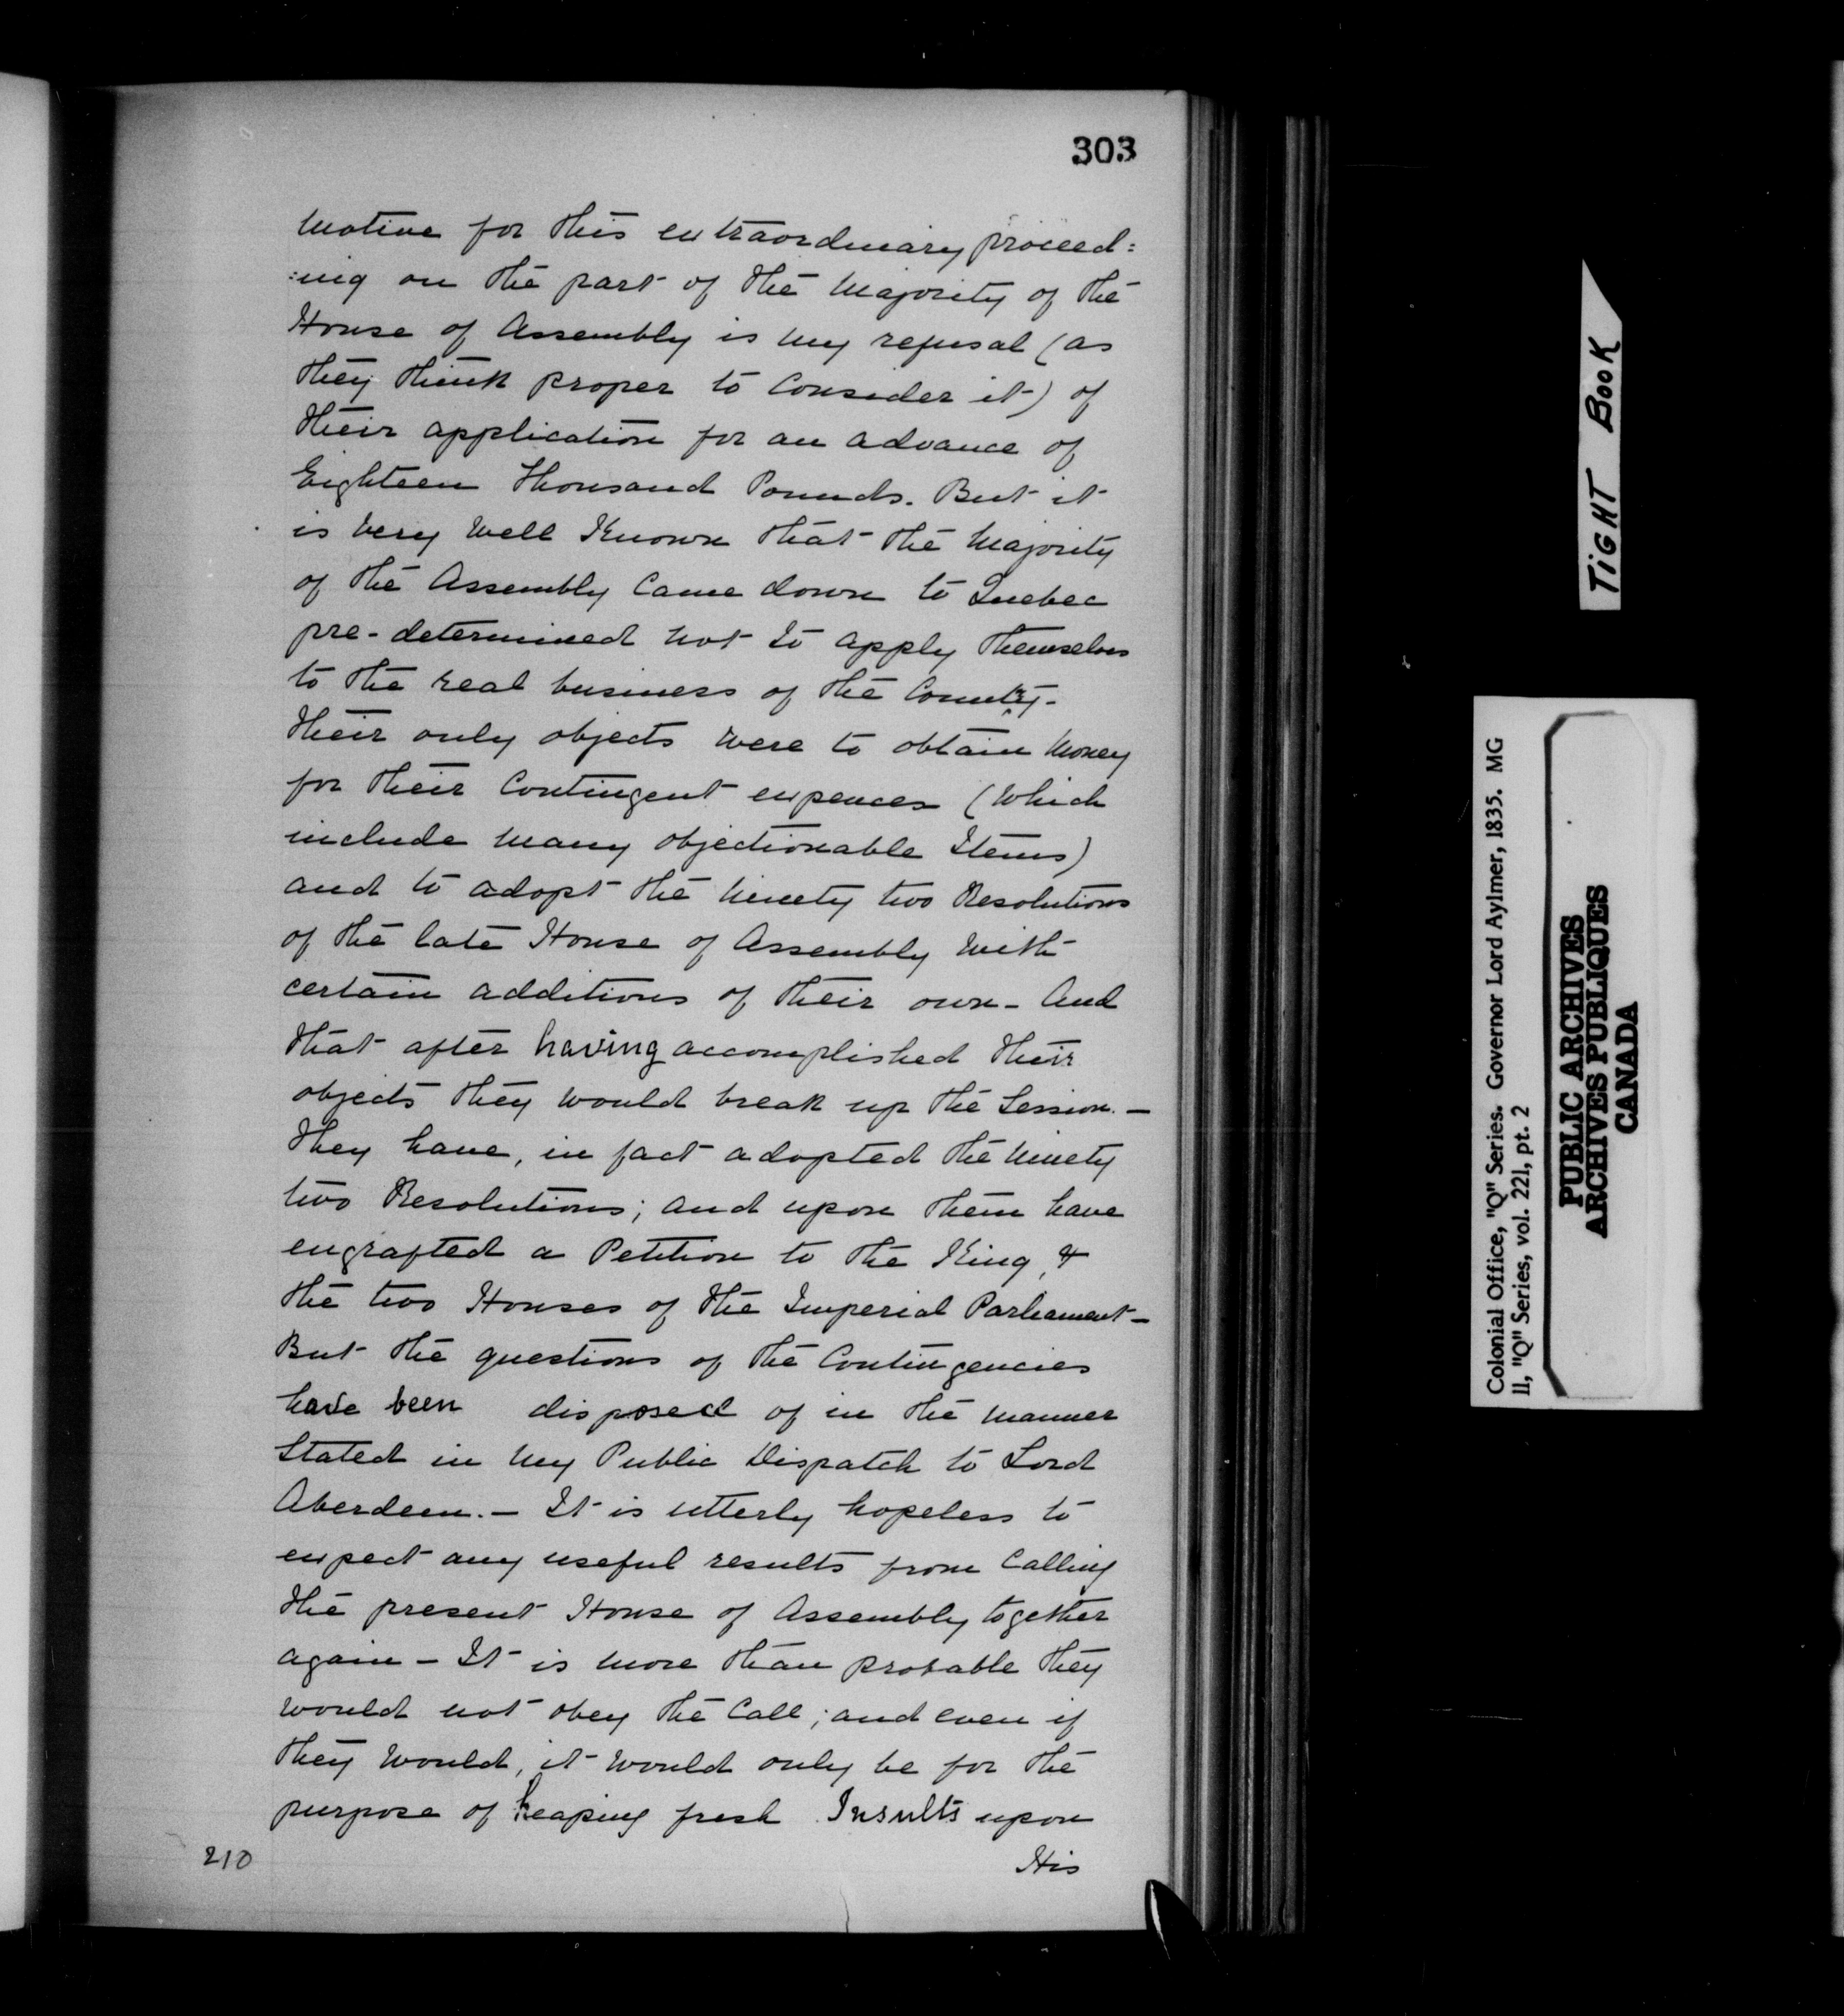 303
Motive for this extraordinary proceed:
:ing on the part of the Majority of the
House of Assembly is my refusal (as
they think proper to Consider it) of
their application for an advance of
Eighteen Thousand Pounds. But it
is Very Well Known that the Majority
of the Assembly Came down to Quebec
pre-determined not to apply themselves
to the real business of the Country-
Their only objects were to obtain Money
for their Contingent expences (Which
include Many objectionable Items)
and to adopt the Ninety two Resolutions
of the late House of Assembly With
certain additions of their own - And
that after having accomplished their
objects they would break up the Session. -
They have, in fact adopted the Ninety
two Resolutions; and upon them have
engrafted a Petition to the King, &
the two Houses of the Imperial Parliament -
But the questions of the Contingencies
have been disposed of in the Manner
Stated in My Public Dispatch to Lord
Aberdeen. - It is utterly hopeless to
expect any useful results from Calling
the present House of Assembly together
again - It is more than probable they
would not obey the Call; and even if
they Would, it Would only be for the
purpose of heaping fresh Insults upon
His
210
TiGHT BOOK
Colonial Office, "Q" Series. Governor Lord Aylmer, 1835. MG
11, "Q" Series, vol. 221, pt. 2
PUBLIC ARCHIVES
ARCHIVES PUBLIQUES
CANADA